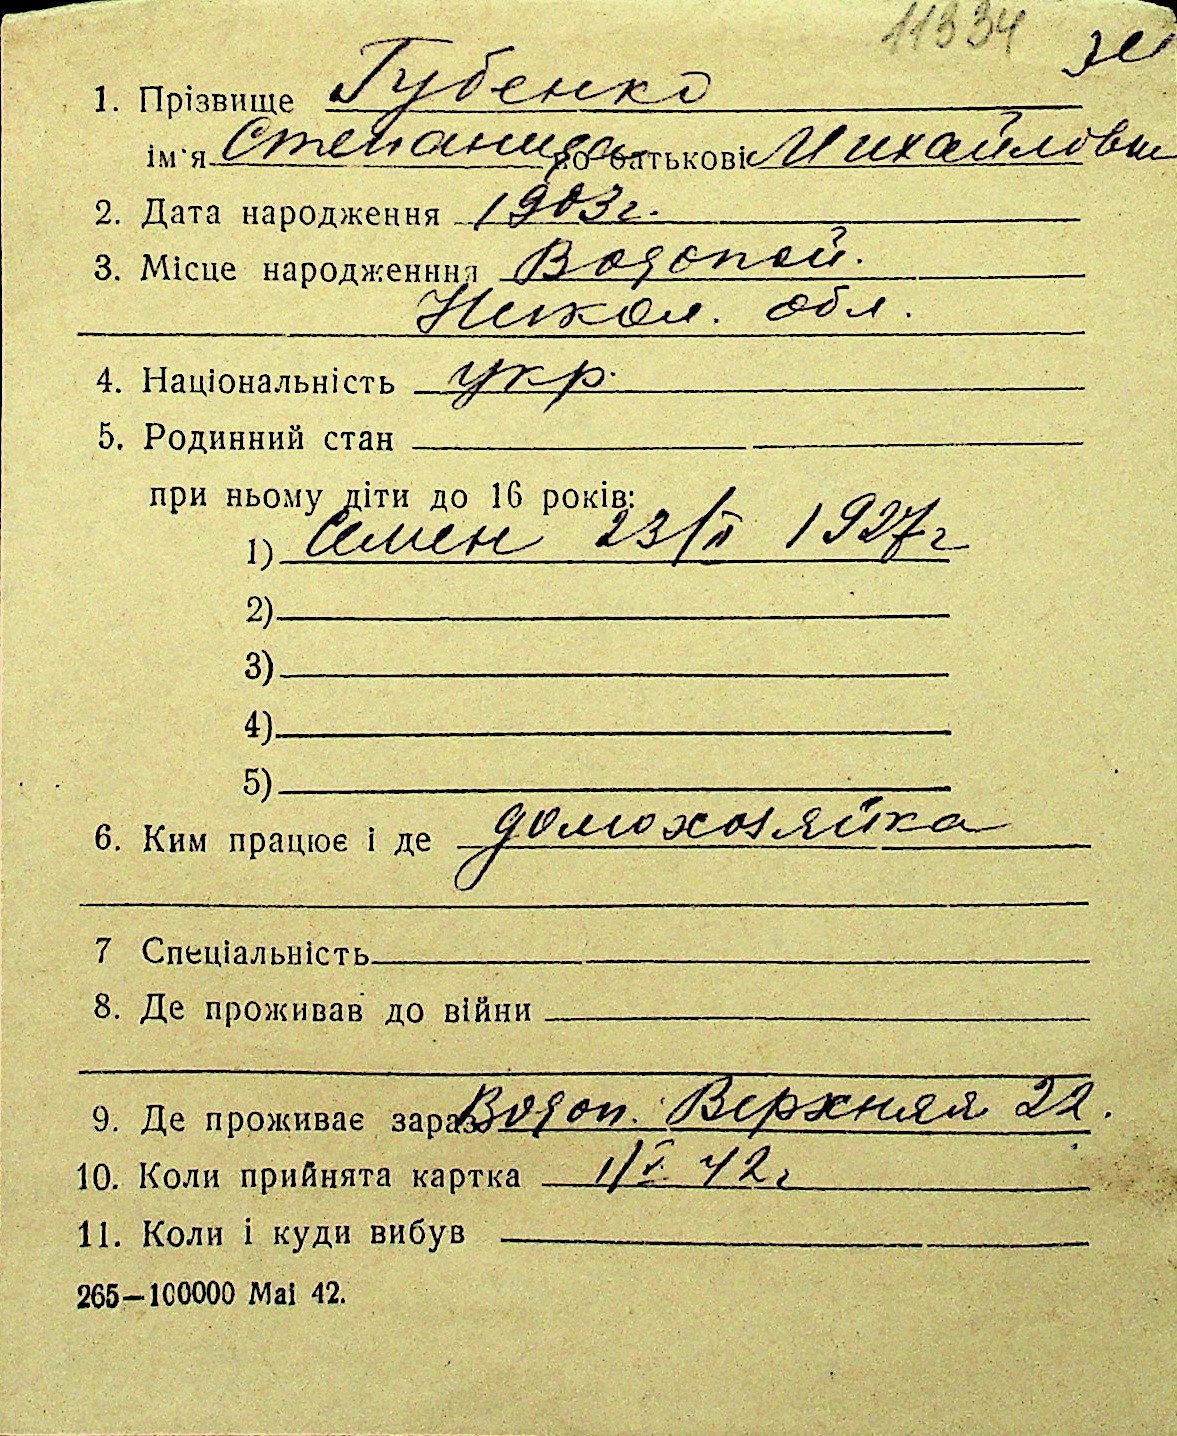 11334 Ж
1. Прізвище Губенко
ім'я Степанида по батькові Михайловн
2. Дата народження 1903 г.
3. Місце народженння Водопой.
Никол. обл.
4. Національність укр.
5. Родинний стан
при ньому діти до 16 років:
1) Семен 23/II 1927 г
2)
3)
4)
5)
6. Ким працює і де домохозяйка
7 Спеціальність
8. Де проживав до війни
9. Де проживає зараз Водоп. Верхняя 22.
10. Коли прийнята картка 1/X 42 г
11. Коли і куди вибув
265—100000 Mai 42.